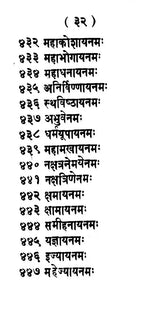 ( ३२ )
४३२ महाकोशायनमः
४३३ महाभोगायनमः
४३४ महाधनायनमः
४३५ अनिर्विण्णायनमः
४३६ स्थविष्ठायनमः
४३७ अभुवेनमः
४३८ धर्मयूपायनमः
४३९ महामखायनमः
४४० नक्षत्रनेमयेनमः
४४१ नक्षत्रिणेनमः
४४२ क्षमायनमः
४४३ क्षामायनमः
४४४ समीहनायनमः
४४५ यज्ञायनमः
४४६ इज्यायनमः
४४७ महेज्यायनमः